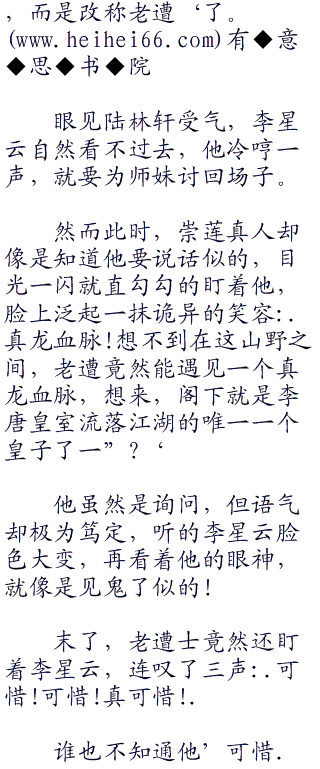 ，而是改称老遭‘了。
(www.heihei66.com)有◆意
◆思◆书◆院
眼见陆林轩受气，李星
云自然看不过去，他冷哼一
声，就要为师妹讨回场子。
然而此时，崇莲真人却
像是知道他要说话似的，目
光一闪就直勾勾的盯着他，
脸上泛起一抹诡异的笑容:.
真龙血脉!想不到在这山野之
间，老遭竟然能遇见一个真
龙血脉，想来，阁下就是李
唐皇室流落江湖的唯一一个
皇子了一”？‘
他虽然是询问，但语气
却极为笃定，听的李星云脸
色大变，再看着他的眼神，
就像是见鬼了似的!
末了，老遭士竟然还盯
着李星云，连叹了三声:.可
惜!可惜!真可惜!.
谁也不知通他’可惜.